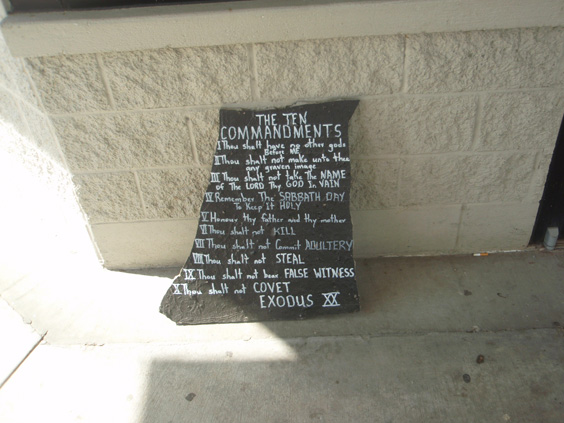 THE TEN
COMMANDMENTS
I Thou shalt have no other gods
Before Me
II Thou shalt not make unto thee
any graven image
III Thou shalt not take The NAME
of The LORD Thy GOD In VAIN
IV Remember The SABBATH DAY
To Keep It HOLY
V Honour thy father and thy mother
VI Thou shalt not KILL
VII Thou shalt not Commit ADULTERY
VIII Thou shalt not STEAL
IX Thou shalt not bear FALSE WITNESS
X Thou shalt not COVET
EXODUS XX